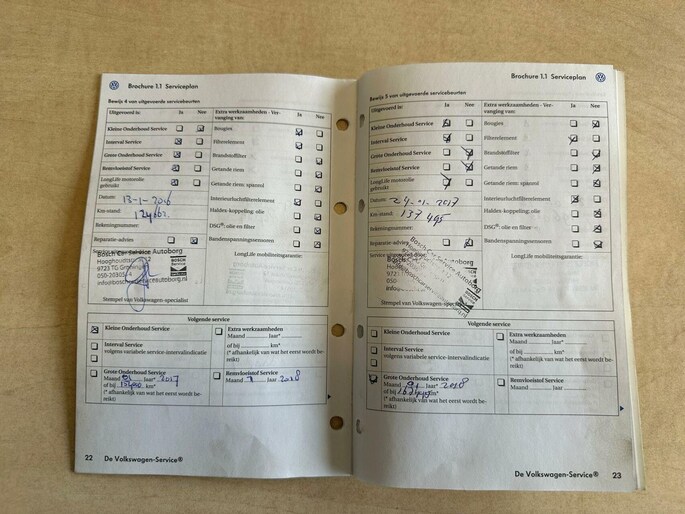 Brochure 1.1 Serviceplan
Bewijs 4 van uitgevoerde servicebeurten
Uitgevoerd is: Ja Nee
Extra werkzaamheden - Ver-
vanging van: Ja Nee
Kleine Onderhoud Service
Interval Service
Grote Onderhoud Service
Remvloeistof Service
LongLife motorolie
gebruikt
Datum: 13-1-2016
Km-stand:
Rekeningnummer:
Reparatie-advies
Bougies
Filterelement
Brandstoffilter
Getande riem
Getande riem: spanrol
Interieurluchtfilterelement
Haldex-koppeling: olie
DSG®: olie en filter
Bandenspanningsensoren
LongLife mobiliteitsgarantie:
Bosch Car Service Autoborg
9723 TG Groningen
info@boschcarserviceautoborg.nl
BOSCH
Stempel van Volkswagen-specialist
Volgende service
Kleine Onderhoud Service
Interval Service
volgens variabele service-intervalindicatie
Grote Onderhoud Service
Maand 01 jaar* 2017
of bij km*
(* afhankelijk van wat het eerst wordt be-
reikt)
Extra werkzaamheden
Maand jaar*
of bij km*
(* afhankelijk van wat het eerst wordt be-
reikt)
Remvloeistof Service
Maand 1 Jaar 2018
22 De Volkswagen-Service®
Brochure 1.1 Serviceplan
Bewijs 5 van uitgevoerde servicebeurten
Uitgevoerd is: Ja Nee
Extra werkzaamheden - Ver-
vanging van: Ja Nee
Kleine Onderhoud Service
Interval Service
Grote Onderhoud Service
Remvloeistof Service
LongLife motorolie
gebruikt
Datum: 24-01-2017
Km-stand: 137495
Rekeningnummer:
Reparatie-advies
Service uitgevoerd door:
Bougies
Filterelement
Brandstoffilter
Getande riem
Getande riem: spanrol
Interieurluchtfilterelement
Haldex-koppeling: olie
DSG®: olie en filter
Bandenspanningsensoren
LongLife mobiliteitsgarantie:
Stempel van Volkswagen-specialist
Volgende service
Kleine Onderhoud Service
Interval Service
volgens variabele service-intervalindicatie
Grote Onderhoud Service
Maand 01 jaar* 2018
of bij km*
(* afhankelijk van wat het eerst wordt be-
reikt)
Extra werkzaamheden
Maand jaar*
of bij km*
(* afhankelijk van wat het eerst wordt be-
reikt)
Remvloeistof Service
Maand Jaar
De Volkswagen-Service® 23